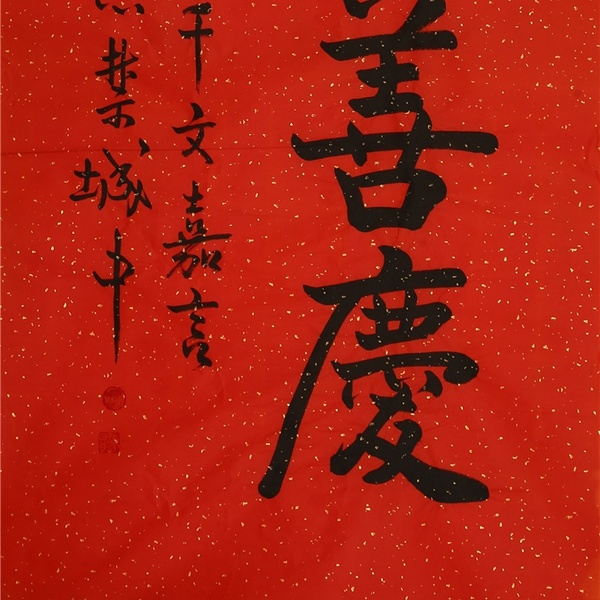 善慶
千文嘉言
禁城中